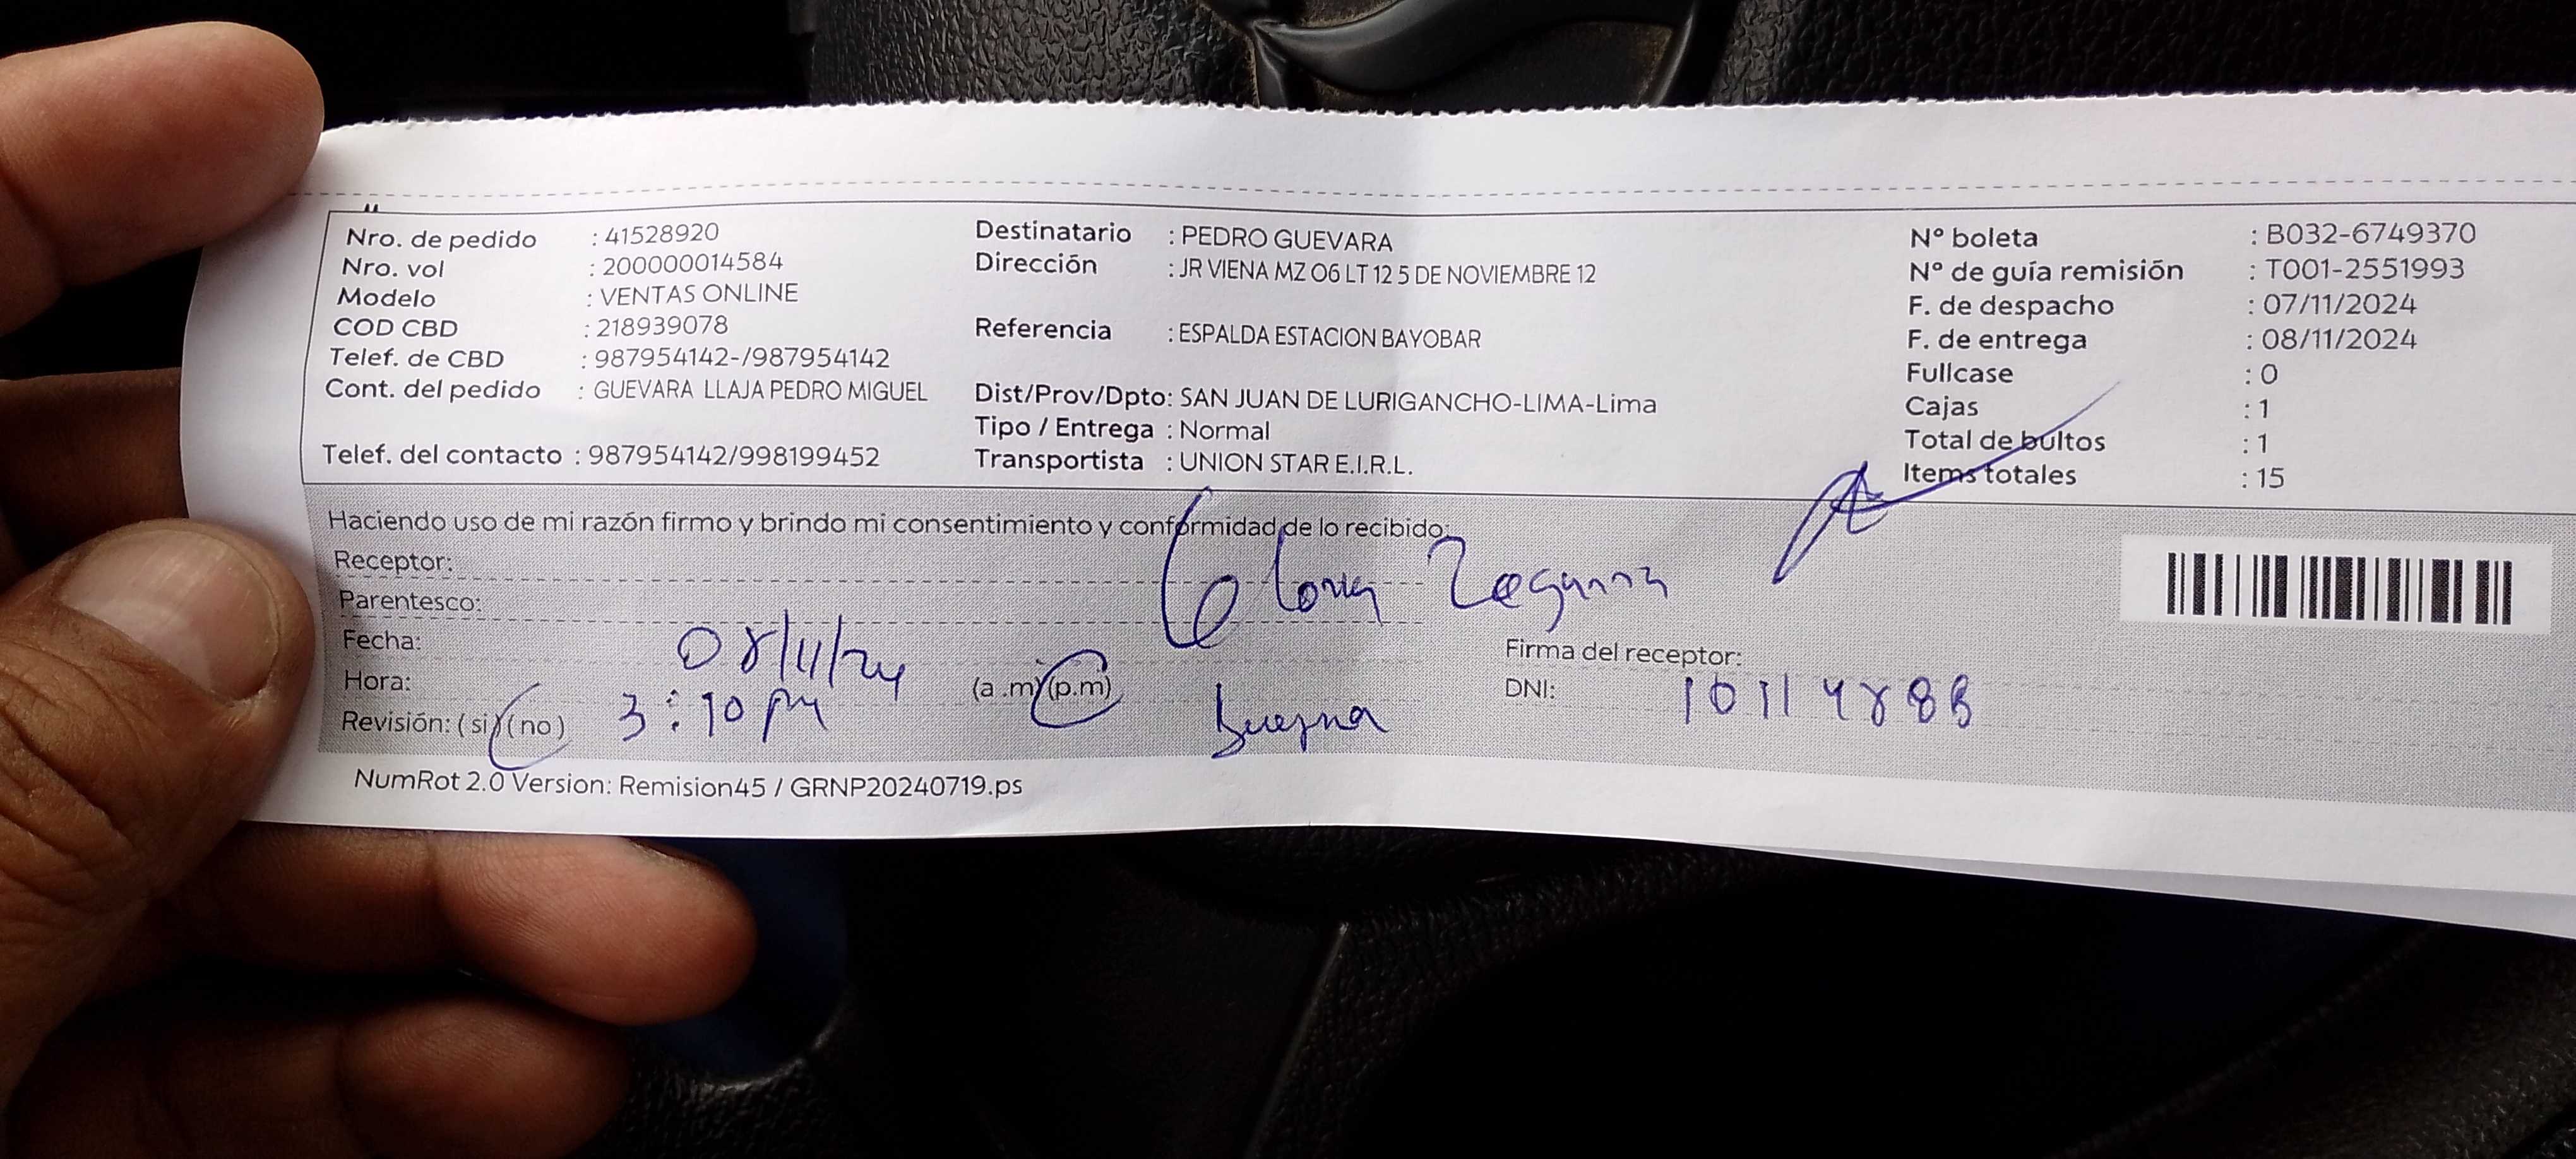 Nro. de pedido : 41528920
Nro. vol : 200000014584
Modelo : VENTAS ONLINE
COD CBD : 218939078
Telef. de CBD : 987954142-/987954142
Cont. del pedido : GUEVARA LLAJA PEDRO MIGUEL
Telef. del contacto : 987954142/998199452
Destinatario : PEDRO GUEVARA
Dirección : JR VIENA MZ O6 LT 12 5 DE NOVIEMBRE 12
Referencia : ESPALDA ESTACION BAYOBAR
Dist/Prov/Dpto: SAN JUAN DE LURIGANCHO-LIMA-Lima
Tipo / Entrega : Normal
Transportista : UNION STAR E.I.R.L.
N° boleta : B032-6749370
N° de guía remisión : T001-2551993
F. de despacho : 07/11/2024
F. de entrega : 08/11/2024
Fullcase : 0
Cajas : 1
Total de bultos : 1
Items totales : 15
Haciendo uso de mi razón firmo y brindo mi consentimiento y conformidad de lo recibido:
Receptor:
Parentesco:
Fecha: 08/11/24
Hora: 3:10 pm (a.m) (p.m)
Revisión: (si) (no)
Firma del receptor:
DNI: 10114888
NumRot 2.0 Version: Remision45 / GRNP20240719.ps